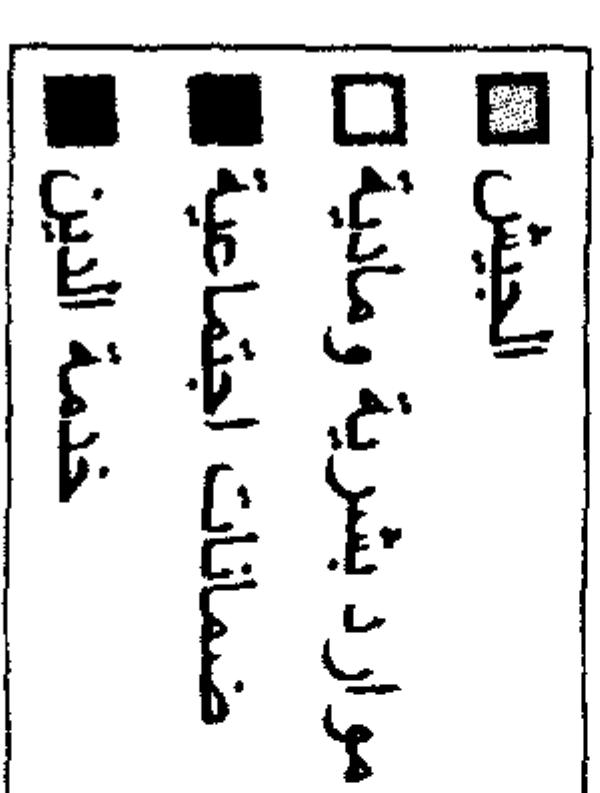 الجيش
موارد بشرية ومادية
ضمانات اجتماعية
خدمة الدين